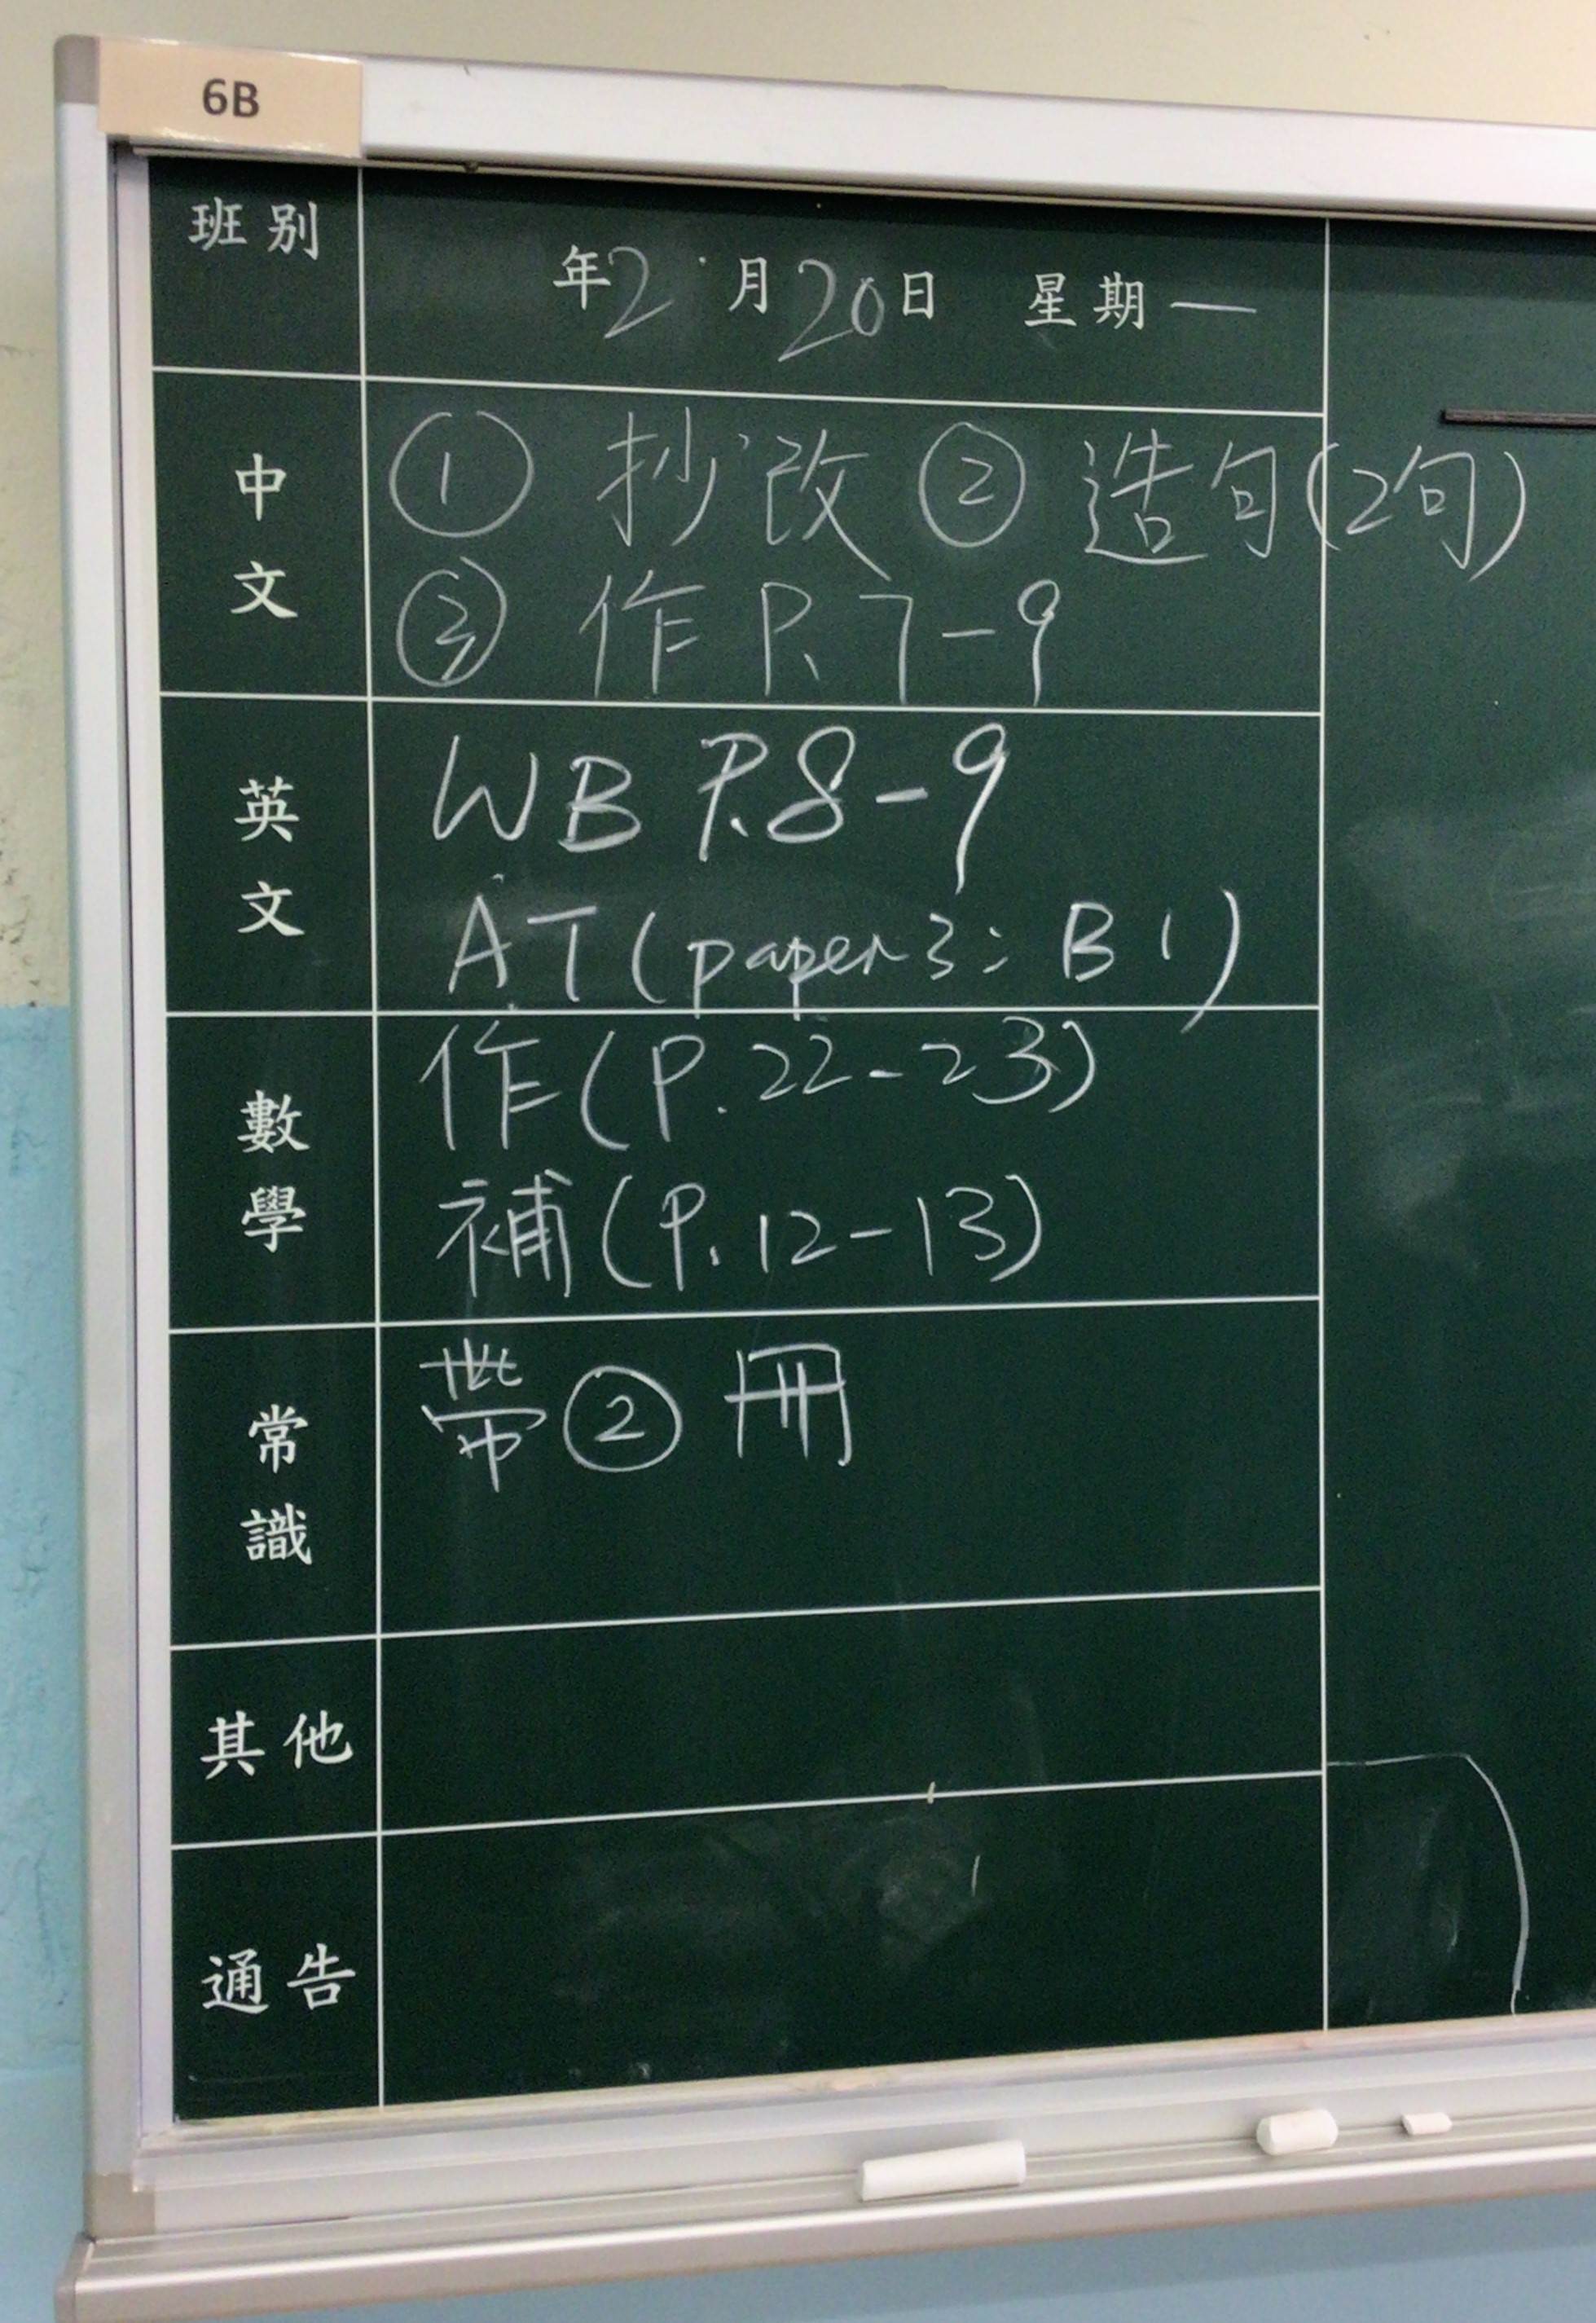 6B
班別
年2月20日 星期一
中文
① 抄改 ② 造句(2句)
③ 作 P.7-9
英文
WB P.8-9
AT(paper 3: B1)
數學
作(P.22-23)
補(P.12-13)
常識
帶② 冊
其他
通告